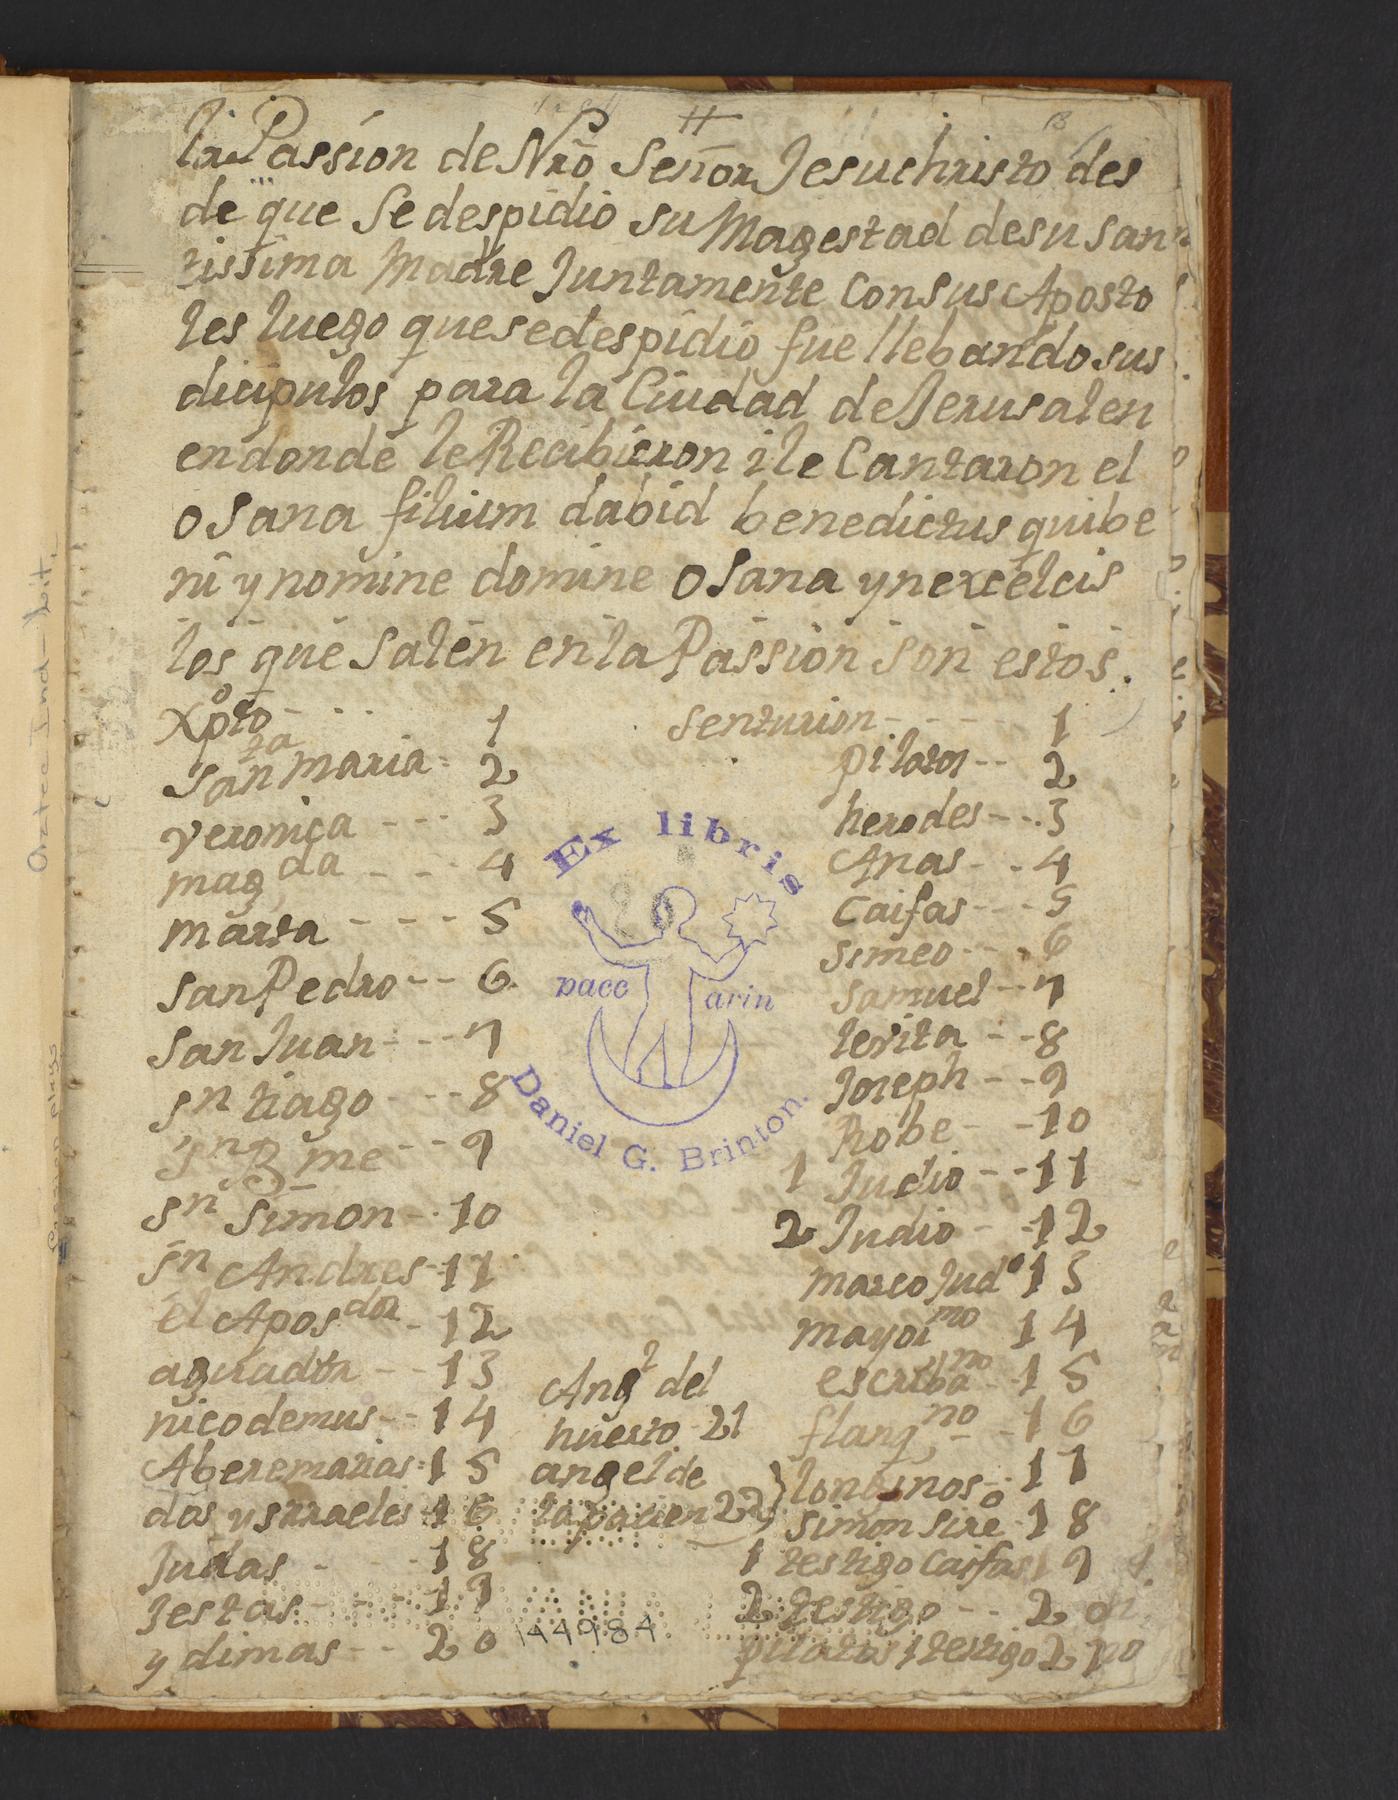 la Passion de Nrõ Señor Jesuchristo des
de que Se despidio su Magestad desu San
tissima Madre Juntamente Con Sus Aposto
les luego que se despidio fue llebando sus
dicipulos para la Ciudad de Jerusalen
en donde le Recibieron i le Cantaron el
oSana filium dabid benedictus quibe
ni y nomine domine oSana ynexcelcis
los que Salen en la Passion son estos.
Xpto 1
Santa maria 2
veronica --- 3
magda -- 4
marta --- 5
San Pedro -- 6
San Juan --- 7
Sn tiago --- 8
Sn Bme -- 9
Sn Simon -- 10
Sn Andres - 11
el Aposdor - 12
aguador -- 13
nicodemus -- 14
Aberemarias 15
dos ysrraeles 16
Judas - - 18
Jestas 19
y dimas -- 20
Angl del
huerto 21
angel de
22
Senturion ---- 1
pilatos -- 2
herodes --- 3
Anas -- 4
Caifas --- 5
Simeo --- 6
Samuel -- 7
levita -- 8
Joseph -- 9
Robe -- 10
1 Judio -- 11
2 Judio -- 12
marco Judo 13
mayormo 14
escribano 15
flangno - 16
longinos -- 17
simon sireo 18
1 testigo Caifas 19
2 testigo -- 20
pilatos 1 testigo 21
Ex libris
pace
arin
Daniel G. Brinton.
144984